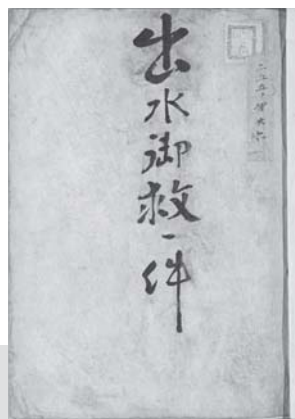 出水御救一件